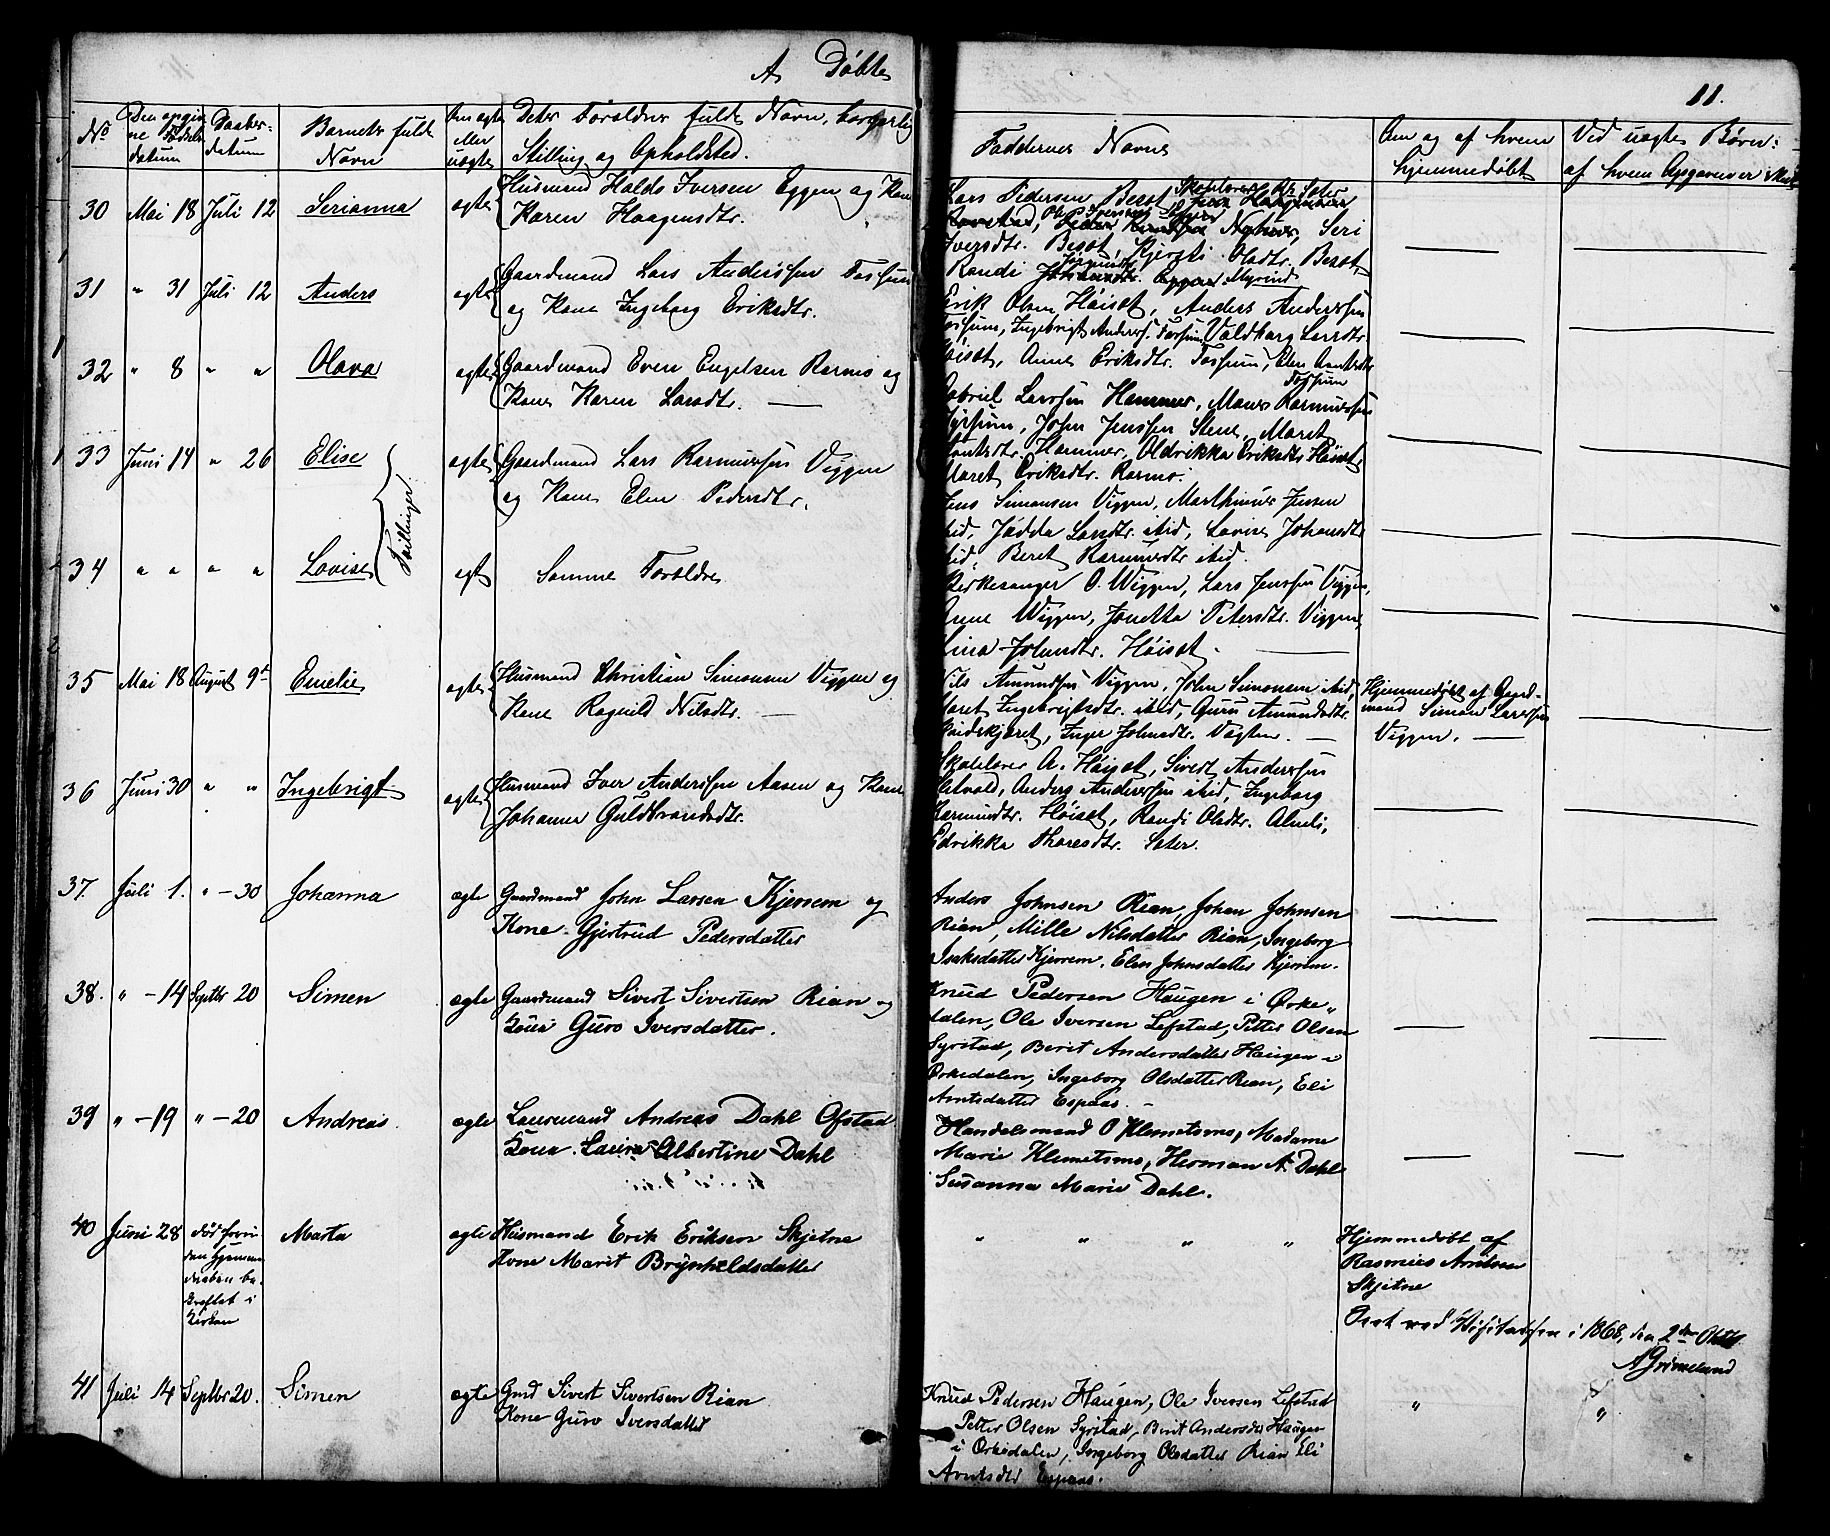 A Døbte
11.
No
Den opgivne Fødselsdatum
Daabsdatum
Barnets fulde Navn
Om ægte eller uægte
Deres Forældres fulde Navn, borgerlig Stilling og Opholdsted.
Faddernes Navne
Om og af hvem hjemmedøbt
Ved uægte Børn: af hvem Opgaven er
30 Mai 18 Juli 12 Serianna ægte Husmand Halds Iversen Eggen og Kone
Karen Haagensdtr.
Lars Pedersen Beret
Nyhus, Seri
Iversdtr. Beset, Kjersti Olsdtr. Beset
Randi Eggen Myrind
31 " 31 Juli 12 Anders ægte Gaardmand Lars Anderssen Fossum
og Kone Ingeborg Eriksdtr.
Erik Olsen Høiset, Anders Anderssen
Fossum, Ingebrigt Anderss. Fossum Valdborg Larsdtr.
Høiset, Anne Eriksdtr. Fossum, Elen
Fossum
32 " 8 " " Olava ægte Gaardmand Even Engelsen Ramo og
Kone Karen Larsdtr.
Gabriel Larssen Hammer, Mons Rasmussen
John Jenssen Stene, Maret
Hammer, Oldrikka Eriksdtr Høiset
Maret Eriksdtr. Ramo.
33 Juni 14 " 26 Elise ægte Gaardmand Lars Rasmussen Viggen
og Kone Elen Pedersdtr.
Tvillinger
Jens Simonsen Viggen, Marthinus Jensen
ibid, Jødda Larsdtr. ibid, Lovise Johansdtr
ibid, Beret Rasmusdtr ibid.
34 " " " " Lovise ægt Samme Forældre
Kirkesanger O. Wiggen, Lars Jenssen Viggen,
Anne Wiggen, Jonetta Petersdtr. Viggen,
Høiset.
35 Mai 18 August 9de Emelie ægte Husmand Christian Simonsen Viggen og
Kone Ragnild Nilsdtr.
Nils Amundsen Viggen, John Simonsen ibid,
Maret Ingebrigtsdtr. ibid, Guru Amundsdtr.
Inger Johnsdtr. Vagten.
Hjemmedøbt af Gaardmand Simon Larssen
Viggen.
36 Juni 30 " " Ingebrigt ægte Husmand Iver Anderssen Aasen og Kone
Johanna Guldbrandsdtr.
Skolelærer A. Høiset, Sivert Anderssen
Anders Anderssen ibid, Ingeborg
Rasmusdtr. Høiset, Randi Olsdtr. Almli,
Edrikka Thoresdtr. Sæter.
37. Juli 1. " - 30 Johanna ægte Gaardmand John Larsen Kjerrem og
Kone Gjertrud Pedersdatter
Anders Johnsen Rian, Johan Johnsen
Rian, Mille Nilsdatter Rian, Ingeborg
Isaksdatter Kjerrem. Elen Johnsdatter Kjerrem.
38. " - 14 Septbr 20 Simen ægte Gaardmand Sivert Sivertsen Rian og
Kone Guro Iversdatter.
Knud Pedersen Haugen i Orke-
dalen, Ole Iversen Lefstad, Petter Olsen
Syrstad, Berit Andersdatter Haugen i
Orkedalen, Ingeborg Olsdatter Rian, Eli
Arntsdatter Espaas.
39 " - 19 " - 20 Andreas. ægte Lænsmand Andreas Dahl Ofstad
Kone Laura Albertine Dahl
Handelsmand O Klemetsmo, Madame
Marie Klemetsmo, Herman A. Dahl
Susanna Marie Dahl.
40 Juni 28 død forinden Hjemmedaaben bekræftet i Kirken Marta ægte Husmand Erik Eriksen Skjetne
Kone Marit Brynhildsdatter
" " " "
Hjemmedøbt af
Rasmus Arntsen
Skjetne
Seet ved Visitatsen i 1868, den 2den Oktbr
A Grimelund
41 Juli 14 Septbr 20. Simen ægte Grd Sivert Sivertsen Rian
Kone Guro Iversdatter
Knud Pedersen Haugen, Ole Iversen Lefstad
Petter Olsen Syrstad, Berit Andersdtr Haugen
i Orkedalen, Ingeborg Olsdatter Rian Eli
Arntsdtr Espaas.
" "